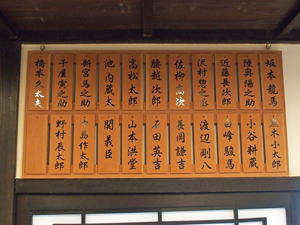 坂本龍馬
陸奥陽之助
近藤長次郎
沢村惣之丞
佐柳高次
腰越次郎
高松太郎
池内蔵太
新宮馬之助
千屋寅之助
橋本久太夫
小谷耕蔵
白峰駿馬
渡辺剛八
長岡謙吉
石田英吉
山本洪堂
関義臣
中島作太郎
野村辰太郎